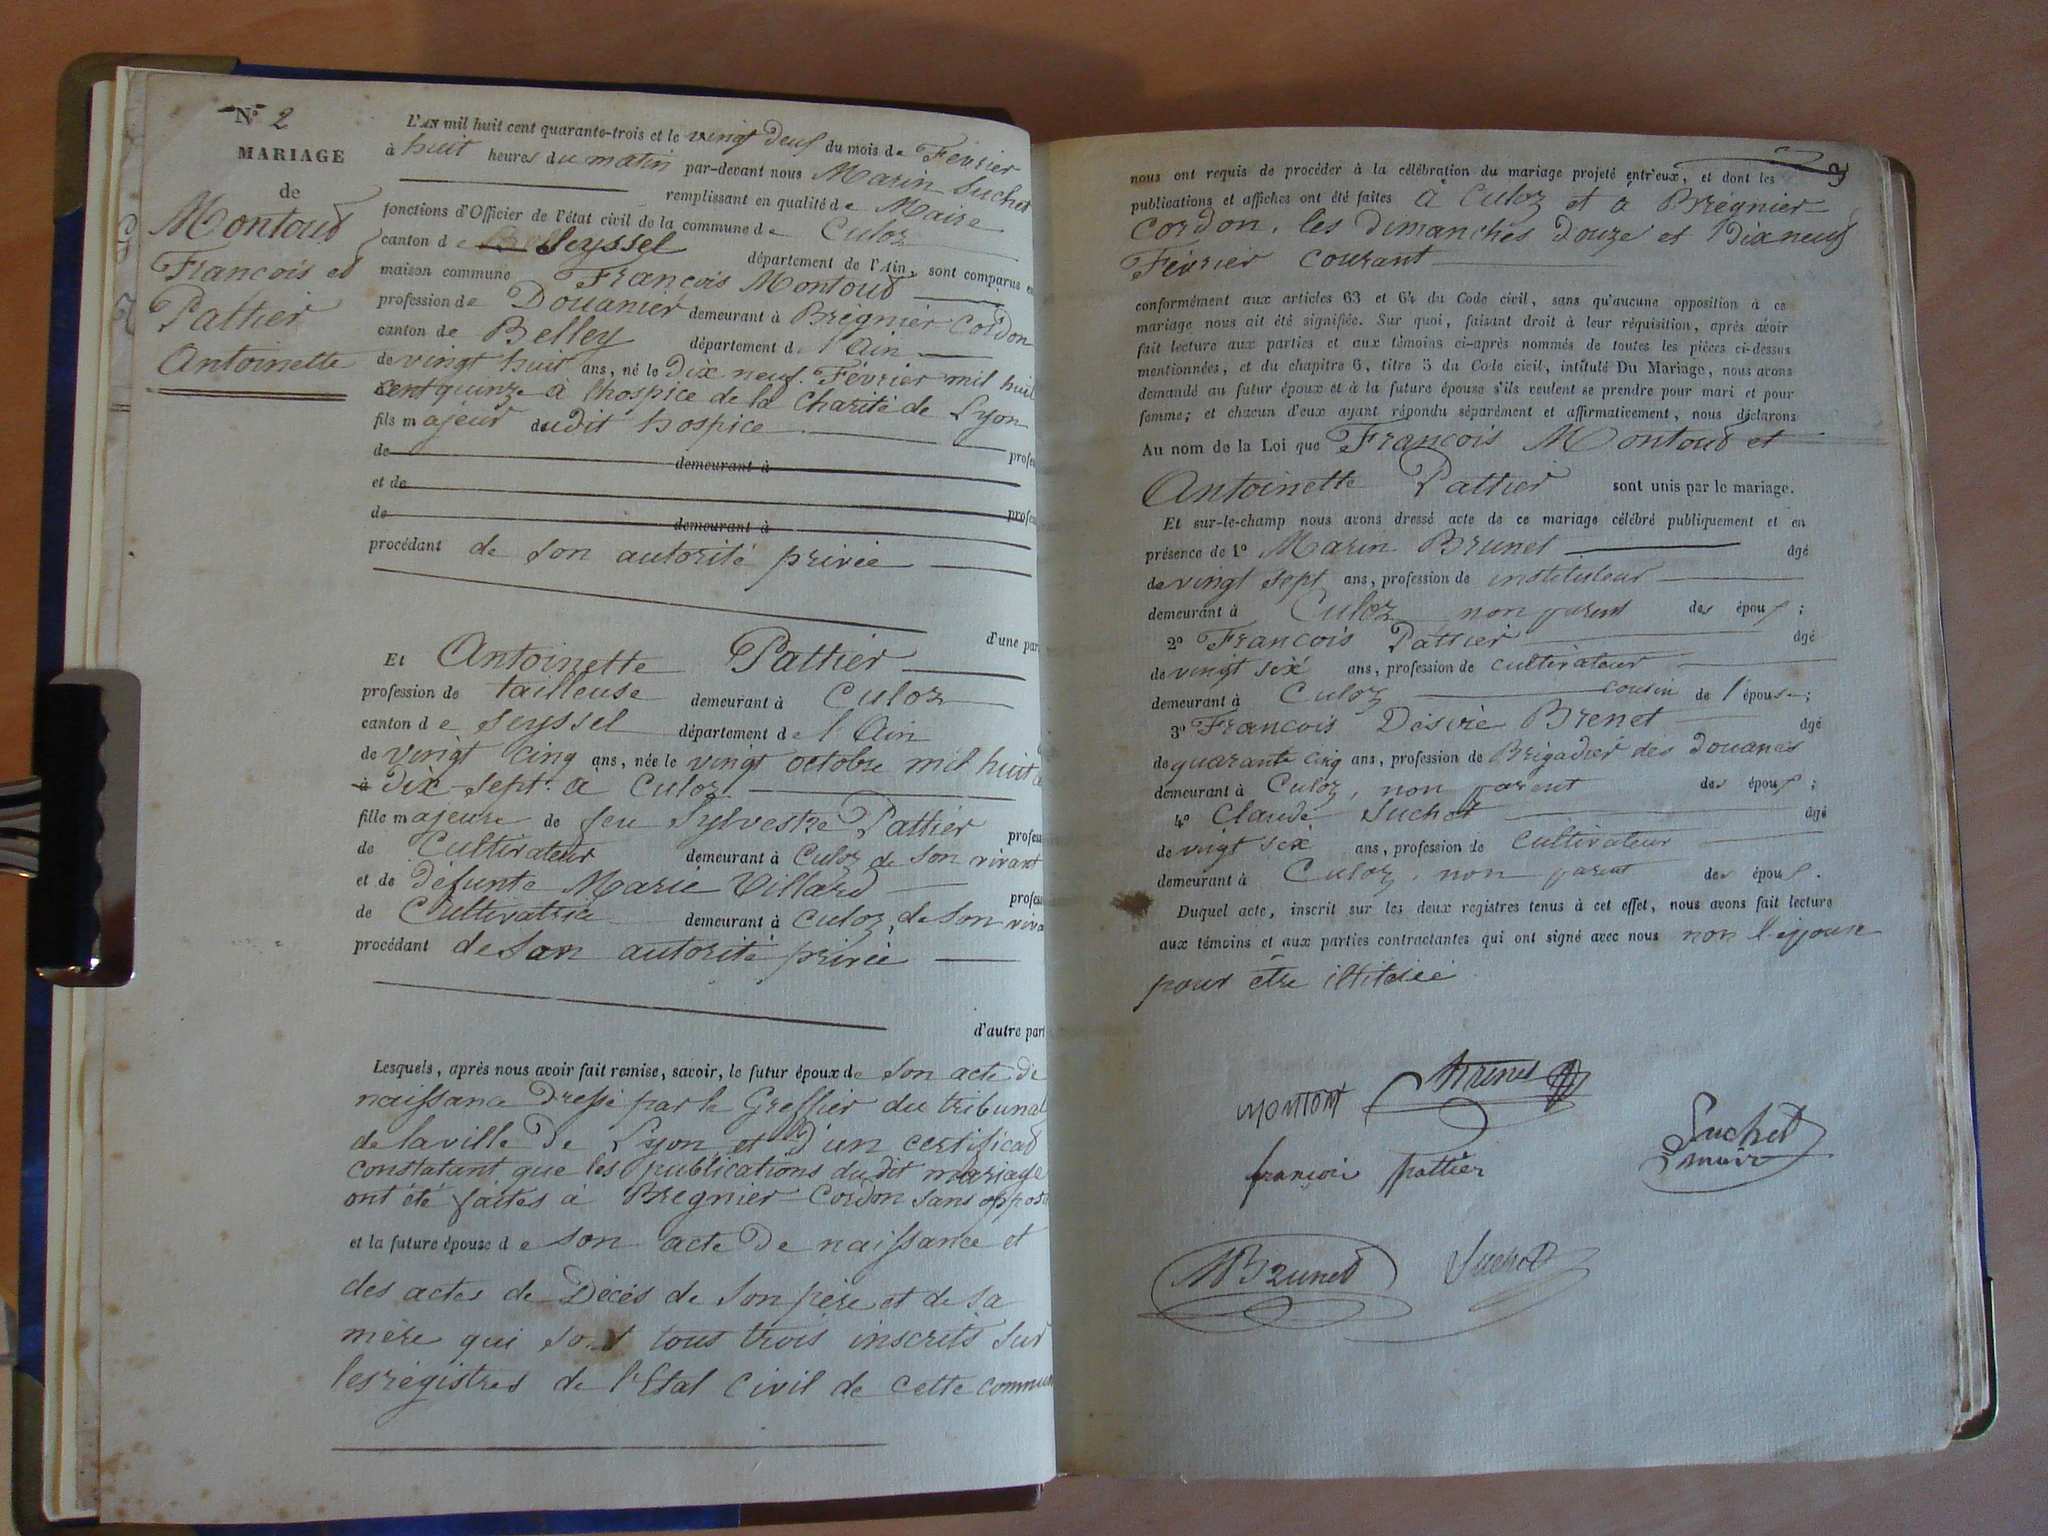 N.º 2
MARIAGE
de
Montoud
François et
Pattier
Antoinette
L'AN mil huit cent quarante-trois et le vingt deux du mois de Février
à huit heures du matin par-devant nous Marin Suchet
remplissant en qualité de Maire
fonctions d'Officier de l'état civil de la commune de Culoz
canton de Seyssel département de l'Ain, sont comparus en
maison commune François Montoud
profession de Douanier demeurant à Bregnier-Cordon
canton de Belley département de l'Ain
de vingt huit ans, né le Dix neuf Février mil huit
cent quinze à l'hospice de la Charité de Lyon
fils majeur dudit hospice
de demeurant à profes
et de
de demeurant à profes
procédant de son autorité privée
d'une part
Et Antoinette Pattier
profession de tailleuse demeurant à Culoz
canton de Seyssel département de l'Ain
de vingt cinq ans, née le vingt octobre mil huit c
à Dix-sept à Culoz
fille majeure de feu Sylvestre Pattier profess
de Cultivateur demeurant à Culoz de son vivant
et de défunte Marie Villard profess
de Cultivatrice demeurant à Culoz, de son viva
procédant de son autorité privée
d'autre part
Lesquels, après nous avoir fait remise, savoir, le futur époux de son acte de
naissance Dressé par le Greffier du tribunal
de la ville de Lyon et d'un certificat
constatant que les publications dudit mariage
ont été faites à Bregnier-Cordon sans opposi
et la future épouse de son acte de naissance et
des actes de Décès de son père et de sa
mère qui sont tous trois inscrits sur
les registres de l'Etat Civil de cette commun
3
nous ont requis de procéder à la célébration du mariage projeté entr'eux, et dont les
publications et affiches ont été faites à Culoz et à Bregnier-
Cordon, les dimanches douze et Dix neuf
Février courant
conformément aux articles 63 et 64 du Code civil, sans qu'aucune opposition à ce
mariage nous ait été signifiée. Sur quoi, faisant droit à leur réquisition, après avoir
fait lecture aux parties et aux témoins ci-après nommés de toutes les pièces ci-dessus
mentionnées, et du chapitre 6, titre 5 du Code civil, intitulé Du Mariage, nous avons
demandé au futur époux et à la future épouse s'ils veulent se prendre pour mari et pour
femme; et chacun d'eux ayant répondu séparément et affirmativement, nous déclarons
Au nom de la Loi que François Montoud et
Antoinette Pattier sont unis par le mariage.
Et sur-le-champ nous avons dressé acte de ce mariage célébré publiquement et en
présence de 1º Marin Brunet âgé
de vingt sept ans, profession de instituteur
demeurant à Culoz non parent des époux;
2º François Pattier âgé
de vingt six ans, profession de cultivateur
demeurant à Culoz cousin de l'épouse;
3º François Désiré Brenet âgé
de quarante cinq ans, profession de Brigadier des douanes
demeurant à Culoz, non parent des époux;
4º Claude Suchet âgé
de vingt six ans, profession de Cultivateur
demeurant à Culoz, non parent des époux.
Duquel acte, inscrit sur les deux registres tenus à cet effet, nous avons fait lecture
aux témoins et aux parties contractantes qui ont signé avec nous non l'épouse
pour être illitérée
montout
françois pattier
Suchet
maire
MBrunet Suchet